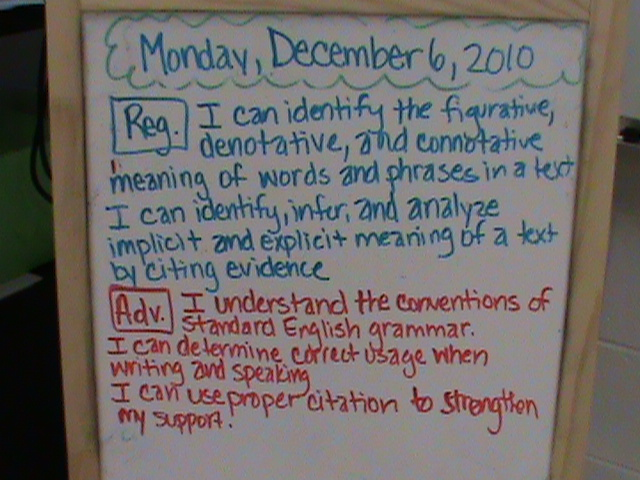 Monday, December 6, 2010
Reg. I can identify the figurative,
denotative, and connotative
meaning of words and phrases in a text
I can identify, infer, and analyze
implicit and explicit meaning of a text
by citing evidence
Adv. I understand the conventions of
Standard English grammar.
I can determine correct usage when
writing and speaking
I can use proper citation to strengthen
my support.